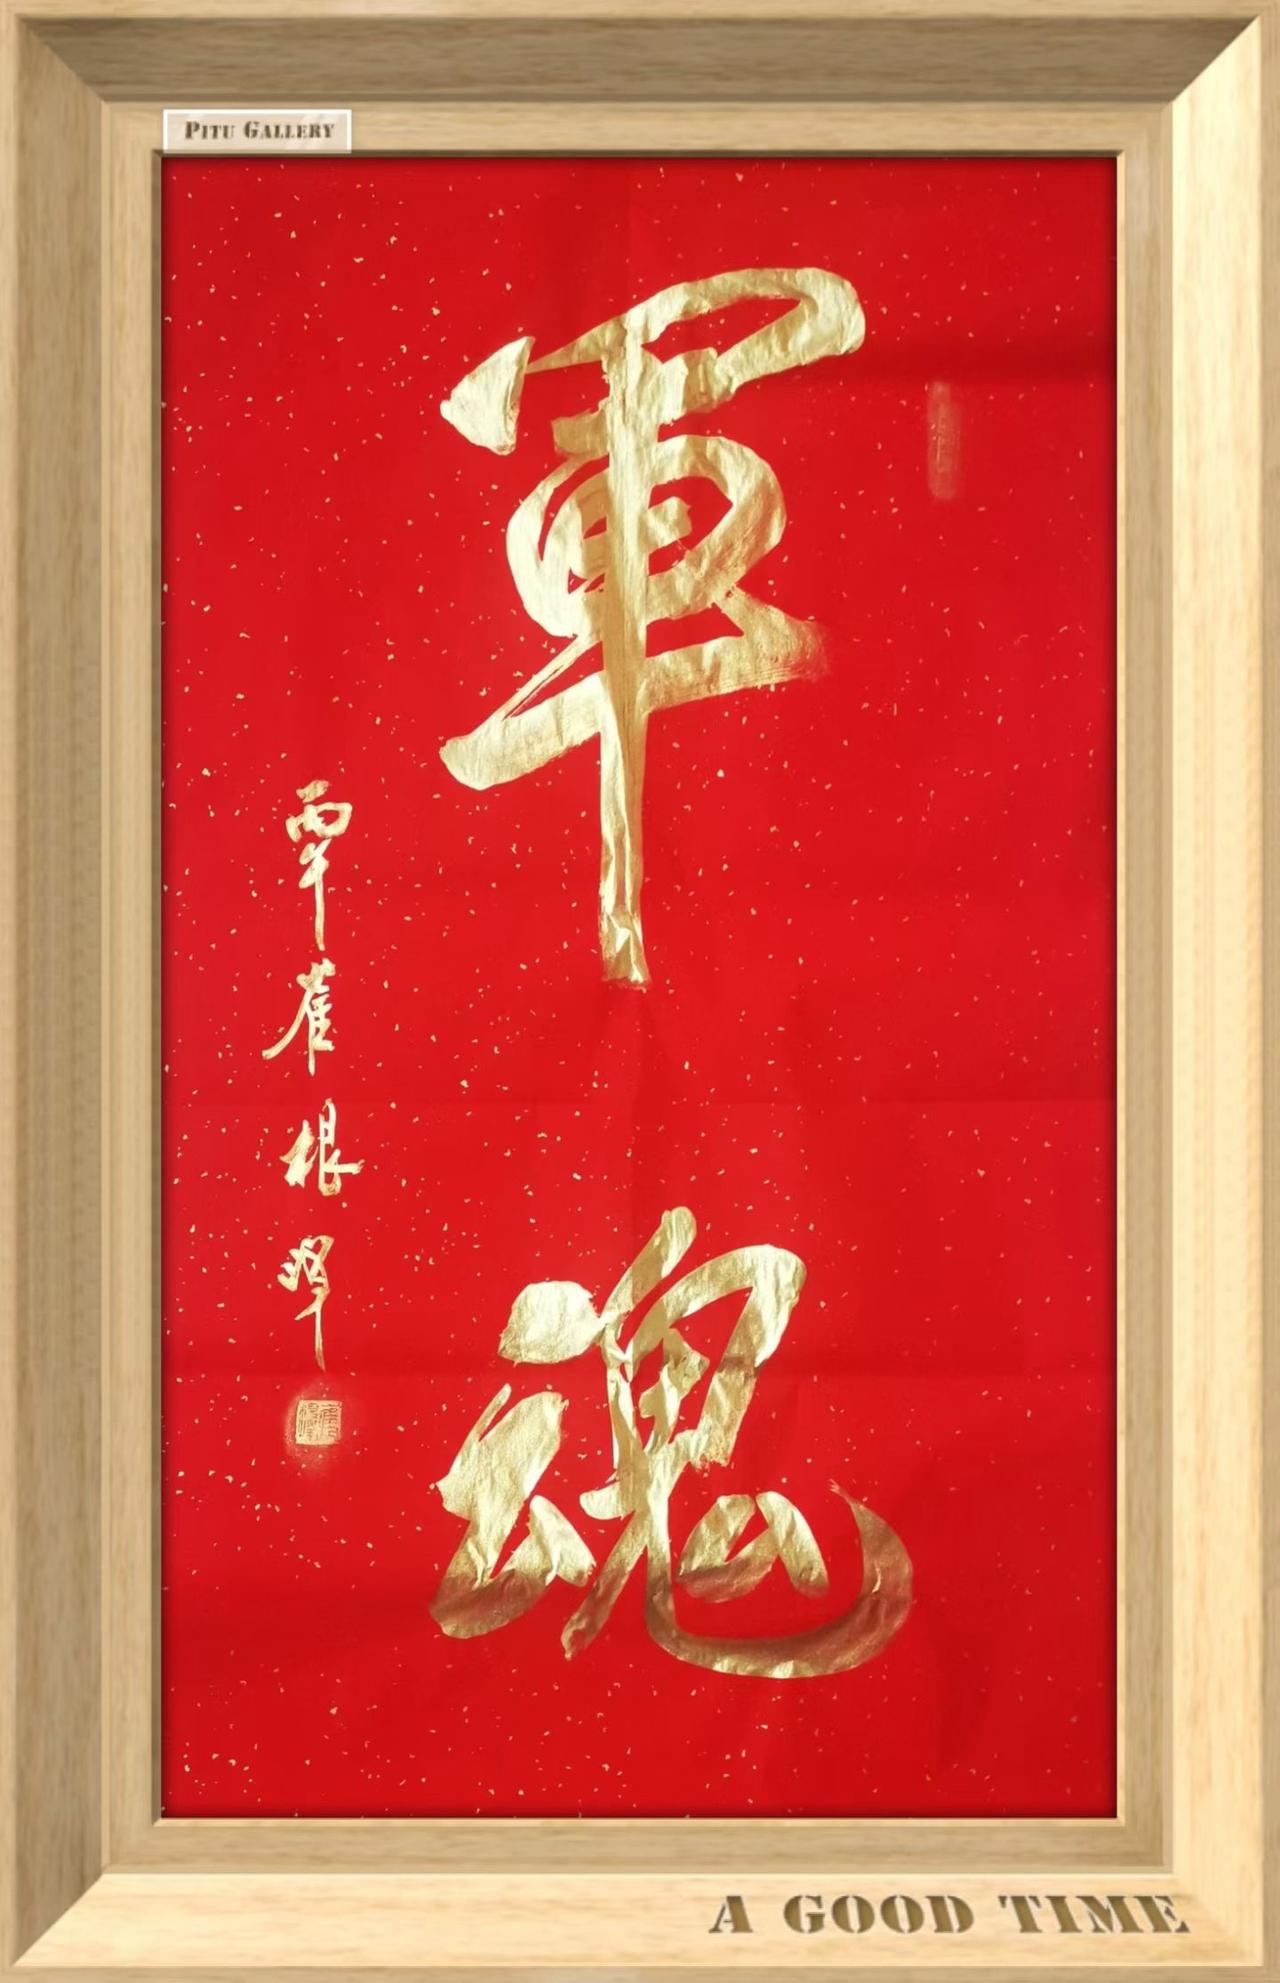 PITU GALLERY
軍魂
丙午崔根
A GOOD TIME